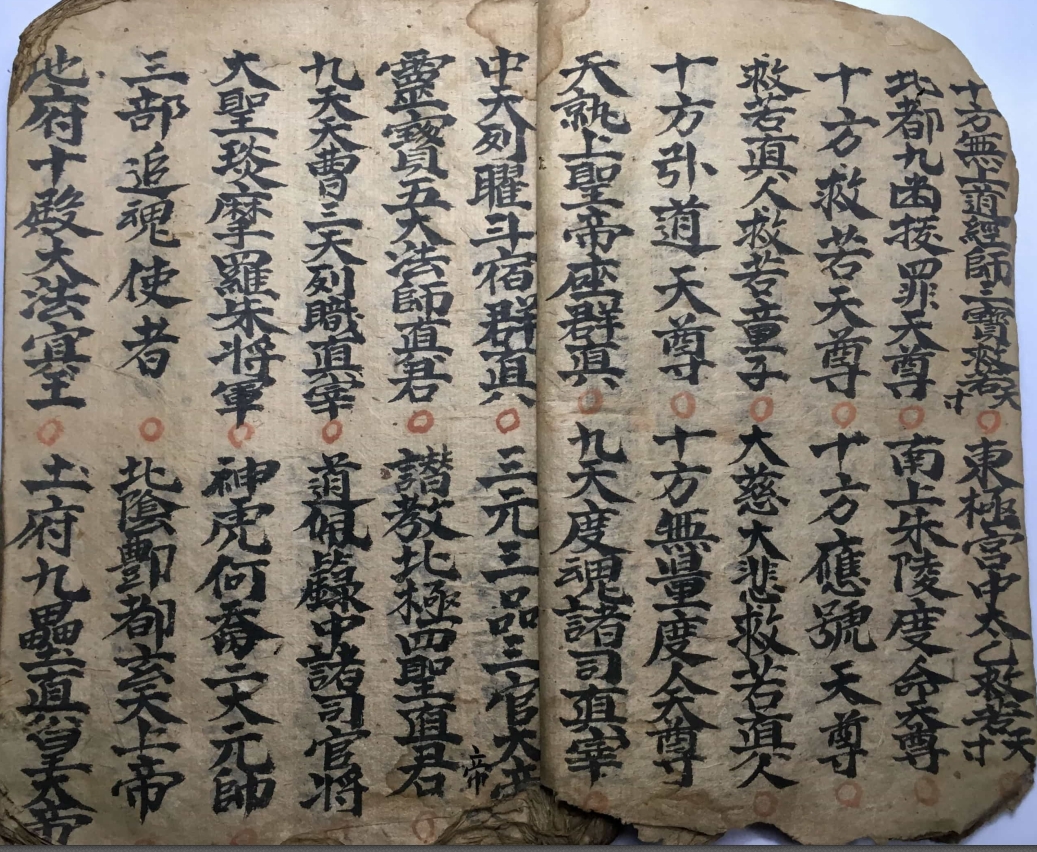 十方無上道經師三寶救苦天寸○東極宮中太乙救苦天寸○
北都九幽拔罪天尊○南上朱陵度命天尊○
十方救苦天尊○十方應號天尊○
救苦真人救苦童子○大慈大悲救苦真人
十方引道天尊○十方無量度人天尊
天執上聖帝座群真○九天度魂諸司真宰○
中天列曜斗宿群真○三元三品三官大帝
靈寶五大法師真君○讃教北極四聖真君○
九天天曹三天列職真宰○道佩籙中諸司官將
大聖琰摩羅朱将軍○神虎何喬二大元帥○
三部追魂使者○北陰酆都玄天上帝○
地府十殿大法冥王○土府九壘土皇大帝